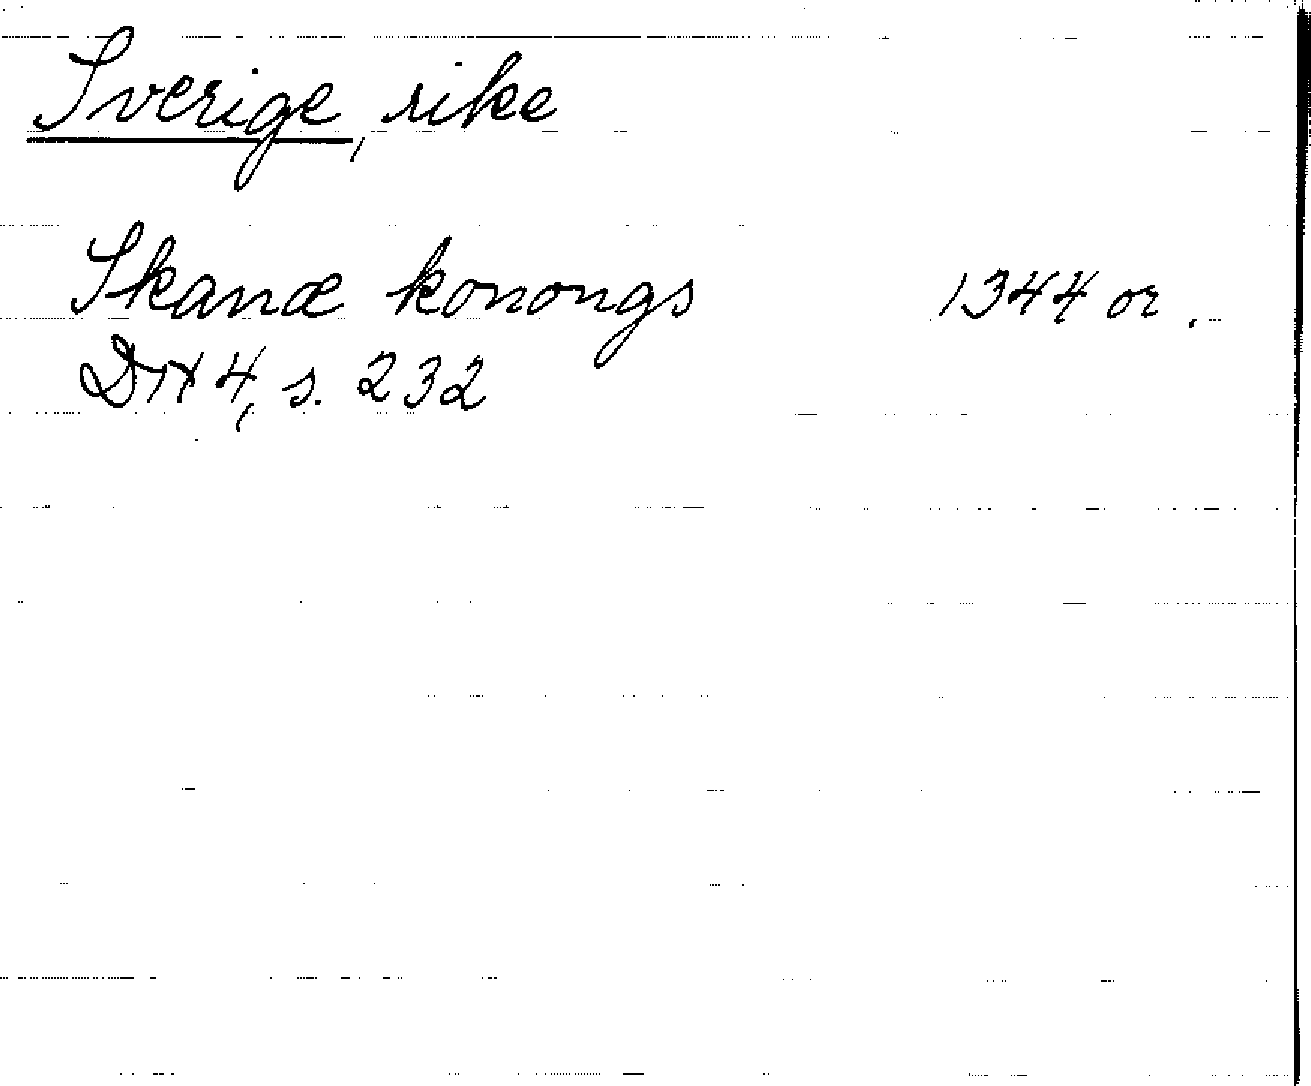 Sverige, rike
Skanæ konongs 1344 or.
DN 4, s. 232